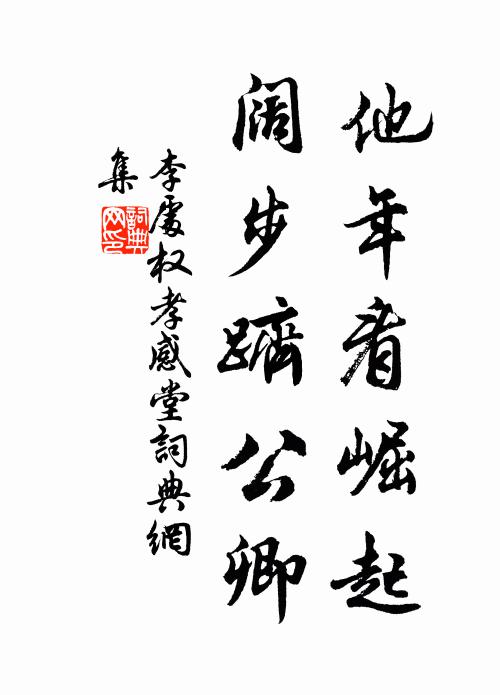 他年看崛起
阔步躋公卿
李處权孝感堂詞典網
集
詞典
网印